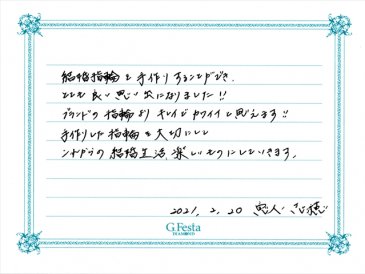 結婚指輪を手作りすることができ、
とても良い思い出になりました!!
ブランドの指輪よりキレイでカワイイと思えます!!
手作りした指輪を大切にして
これからの結婚生活、楽しいものにしていきます。
2021. 2. 20
G.Festa
DIAMOND